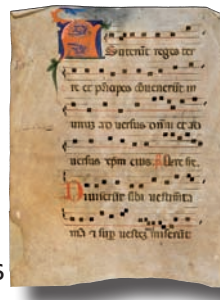 Astiterūt reges ter
re et pͥncipes ꝯuenerūt in
unuz ad uersus dn̄m et ad
uersus xp̄m eius.
Diuiserūt sibi uestim̄ta
mea ⁊ suꝑ uestez miserūt